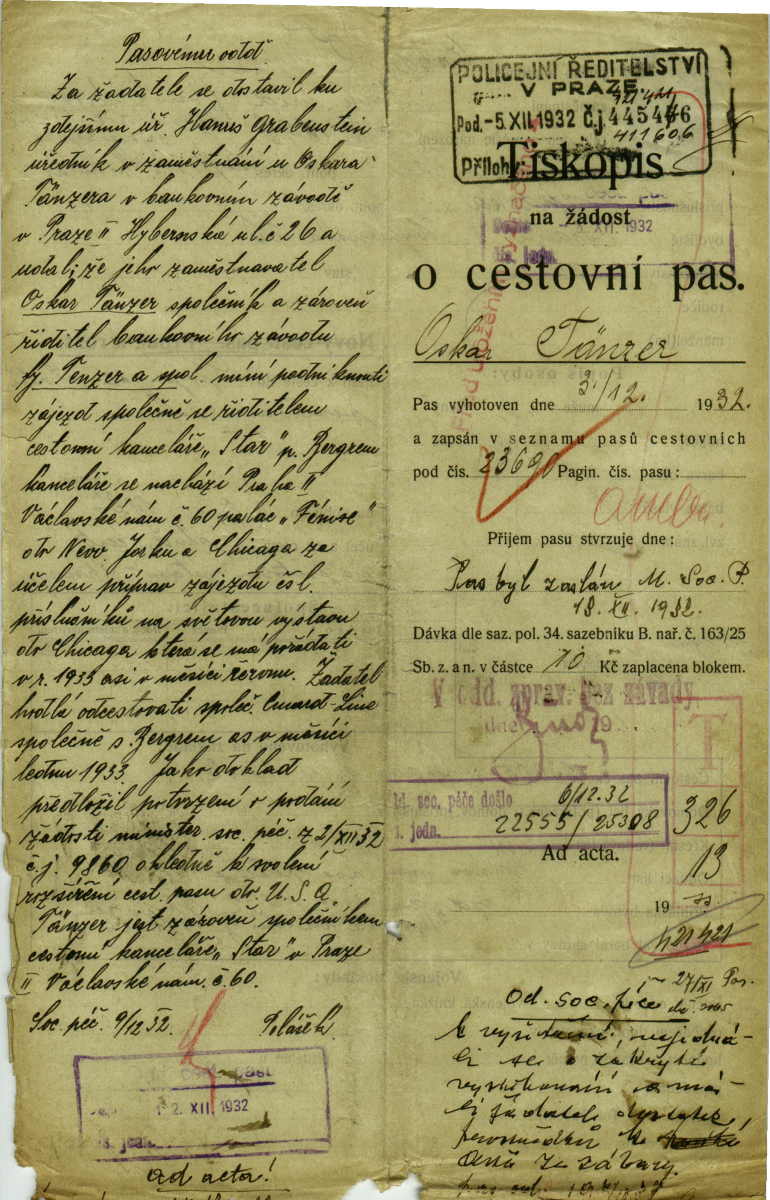 Pasovému odd.
Za žadatele se dostavil ku
zdejšímu úř. Hanuš Grabenstein
úředník v zaměstnání u Oskara
Tänzera v bankovním závodě
v Praze II Hybernská ul. č 26 a
udal, že jeho zaměstnavatel
Oskar Tänzer společník a zároveň
ředitel bankovního závodu
fy. Tenzer a spol. míní podniknouti
zájezd společně se ředitelem
cestovní kanceláře „Star" p. Bergrem
kanceláře se nachází Praha II
Václavské nám č. 60 palác „Fénixe"
do Nevo Jorku a Chicaga za
účelem příprav zájezdu čsl.
příslušníků na světovou výstavu
do Chicaga která se má pořádati
v r. 1933 asi v měsíci červnu. Žadatel
hodlá odcestovati společ. Cunardt-Line
společně s Bergrem as v měsíci
lednu 1933. Jako doklad
předložil potvrzení o podání
žádosti minister. soc. péč. z 2/XII 32
č. j. 9860 ohledně k svolení
rozšíření cest. pasu do U. S. A.
Tänzer jest zároveň společníkem
cestovní kanceláře „Star" v Praze
II Václavské nám. č. 60.
Soc. péč. 9/12 32. Polášek
2. XII. 1932
ad acta!
POLICEJNÍ ŘEDITELSTVÍ
V PRAZE.
421421
Pod. -5. XII. 1932 Č.j. 445446
411606
Příloh:
Tiskopis
na žádost
XII. 1932
o cestovní pas.
Oskar Tänzer
Pas vyhotoven dne 3./12. 1932.
a zapsán v seznamu pasů cestovních
pod čís. 23690 Pagin. čís. pasu:
Příjem pasu stvrzuje dne:
Pas byl zaslán M. Soc. P.
18. XII. 1932.
Dávka dle saz. pol. 34. sazebníku B. nař. č. 163/25
Sb. z. a n. v částce 10 Kč zaplacena blokem.
V odd. zprav. bez závady.
dne 19
T
soc. péče došlo 6/12. 32
j. jedn. 22555/25308
326
Ad acta.
13
19 33
421421
27/XI Pas.
Od. soc. péče
k vyšetření, nejedná-
li se o zakryté
vystěhování a má-
li žadatel dostatek
prostředků k